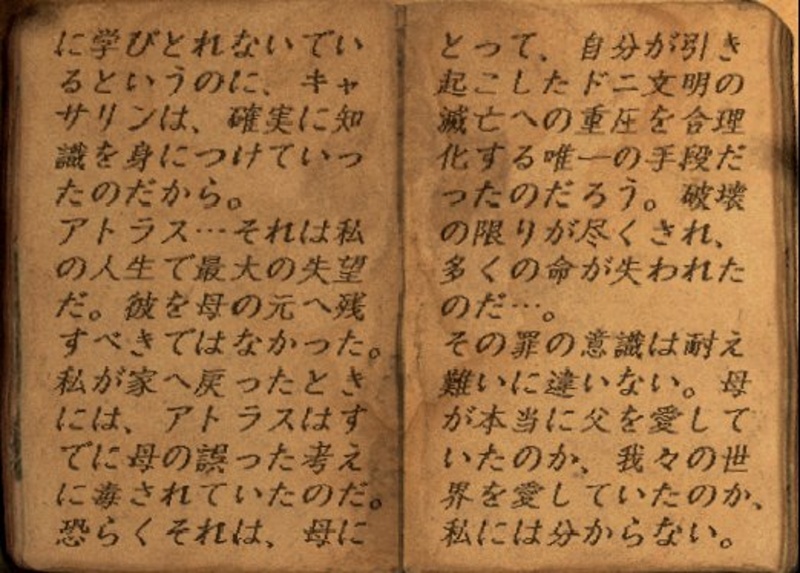 に学びとれないでい
るというのに、キャ
サリンは、確実に知
識を身につけていっ
たのだから。
アトラス…それは私
の人生で最大の失望
だ。彼を母の元へ残
すべきではなかった。
私が家へ戻ったとき
には、アトラスはす
でに母の誤った考え
に毒されていたのだ。
恐らくそれは、母に
とって、自分が引き
起こしたドニ文明の
滅亡への重圧を合理
化する唯一の手段だ
ったのだろう。破壊
の限りが尽くされ、
多くの命が失われた
のだ…。
その罪の意識は耐え
難いに違いない。母
が本当に父を愛して
いたのか、我々の世
界を愛していたのか、
私には分からない。